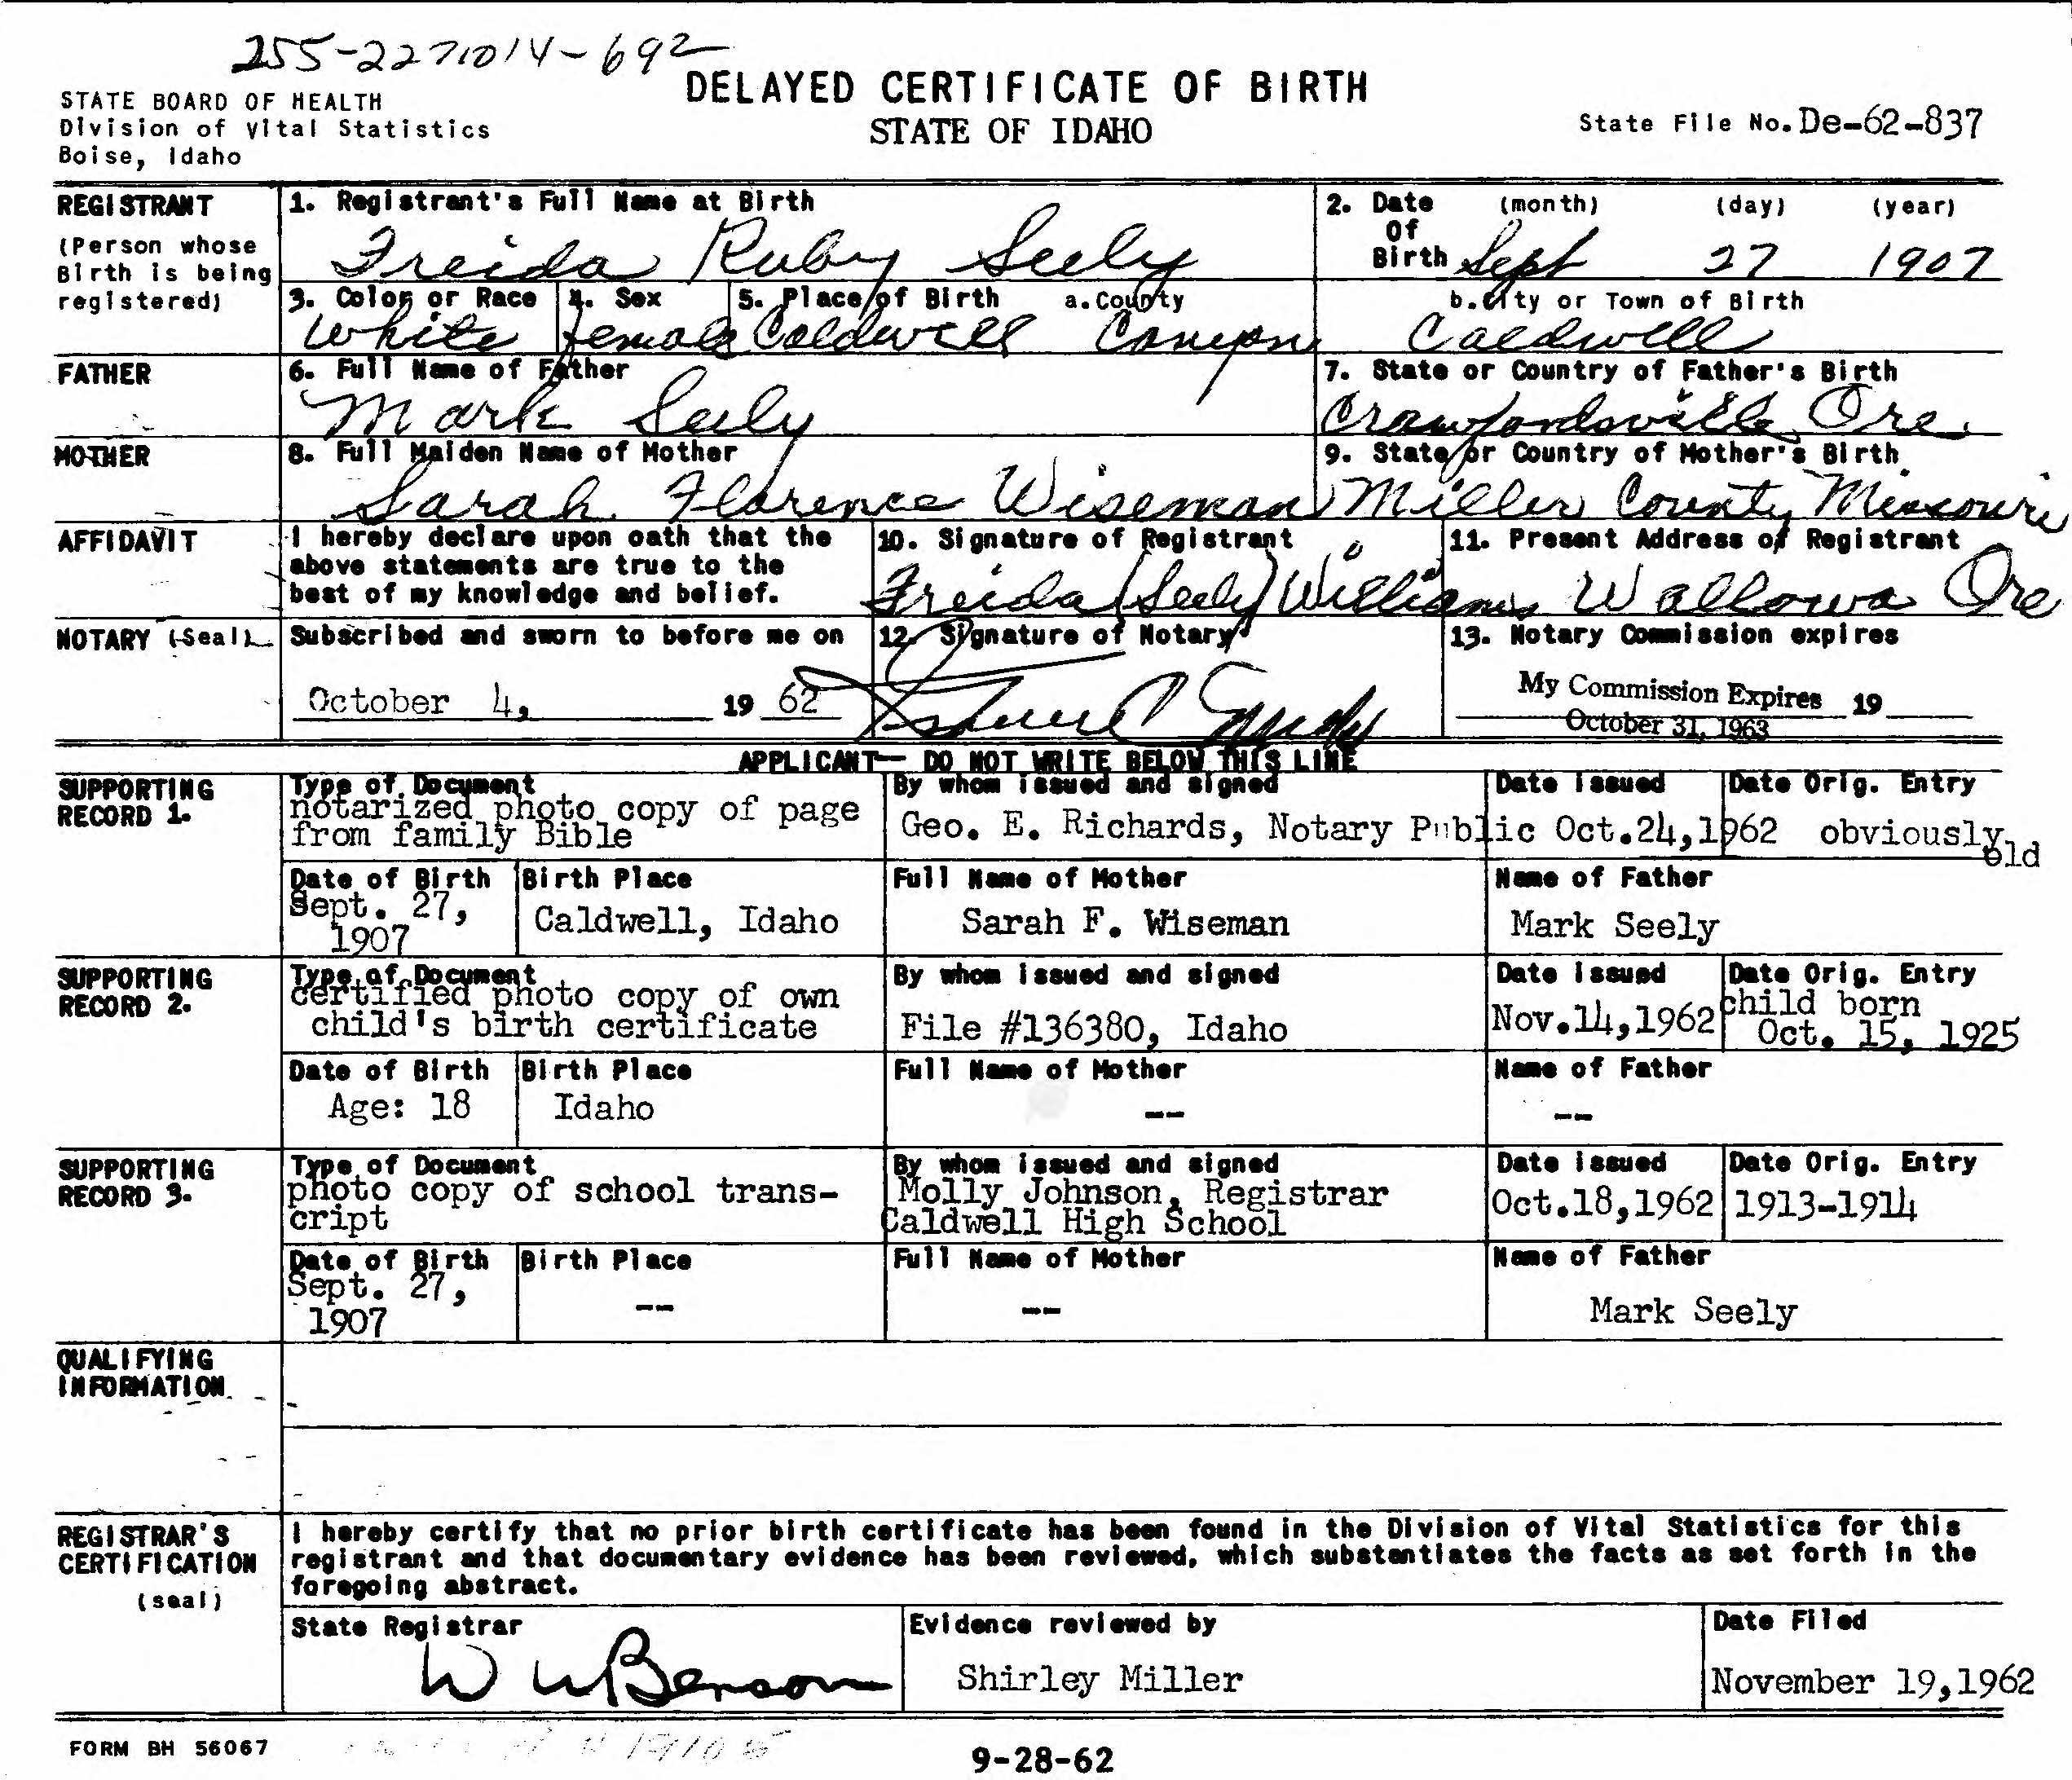 255-2271014-692
DELAYED CERTIFICATE OF BIRTH
STATE OF IDAHO
STATE BOARD OF HEALTH
Division of Vital Statistics
Boise, Idaho
State File No. De-62-837
REGISTRANT
(Person whose
Birth is being
registered)
1. Registrant's Full Name at Birth
Freida Ruby Seely
2. Date Of Birth (month) (day) (year)
Sept 27 1907
3. Color or Race 4. Sex 5. Place of Birth a. County b. City or Town of Birth
White female Caldwell Canyon Caldwell
FATHER
6. Full Name of Father
Mark Seely
7. State or Country of Father's Birth
Crawfordsville, Ore.
MOTHER
8. Full Maiden Name of Mother
Sarah Florence Wiseman
9. State or Country of Mother's Birth
Miller County, Missouri
AFFIDAVIT
I hereby declare upon oath that the
above statements are true to the
best of my knowledge and belief.
10. Signature of Registrant
Freida (Seely) Williams
11. Present Address of Registrant
Wallowa Ore
NOTARY (Seal)
Subscribed and sworn to before me on
October 4, 19 62
12. Signature of Notary
13. Notary Commission expires
My Commission Expires 19
October 31, 1963
APPLICANT— DO NOT WRITE BELOW THIS LINE
SUPPORTING
RECORD 1.
Type of Document
notarized photo copy of page
from family Bible
By whom issued and signed
Geo. E. Richards, Notary Public
Date issued
Oct.24,1962
Date Orig. Entry
obviously
old
Date of Birth
Sept. 27,
1907
Birth Place
Caldwell, Idaho
Full Name of Mother
Sarah F. Wiseman
Name of Father
Mark Seely
SUPPORTING
RECORD 2.
Type of Document
certified photo copy of own
child's birth certificate
By whom issued and signed
File #136380, Idaho
Date issued
Nov.14,1962
Date Orig. Entry
child born
Oct. 15, 1925
Date of Birth
Age: 18
Birth Place
Idaho
Full Name of Mother
--
Name of Father
--
SUPPORTING
RECORD 3.
Type of Document
photo copy of school trans-
cript
By whom issued and signed
Molly Johnson, Registrar
Caldwell High School
Date issued
Oct.18,1962
Date Orig. Entry
1913-1914
Date of Birth
Sept. 27,
1907
Birth Place
--
Full Name of Mother
--
Name of Father
Mark Seely
QUALIFYING
INFORMATION
REGISTRAR'S
CERTIFICATION
(seal)
I hereby certify that no prior birth certificate has been found in the Division of Vital Statistics for this
registrant and that documentary evidence has been reviewed, which substantiates the facts as set forth in the
foregoing abstract.
State Registrar
W W Benson
Evidence reviewed by
Shirley Miller
Date Filed
November 19,1962
FORM BH 56067
9-28-62